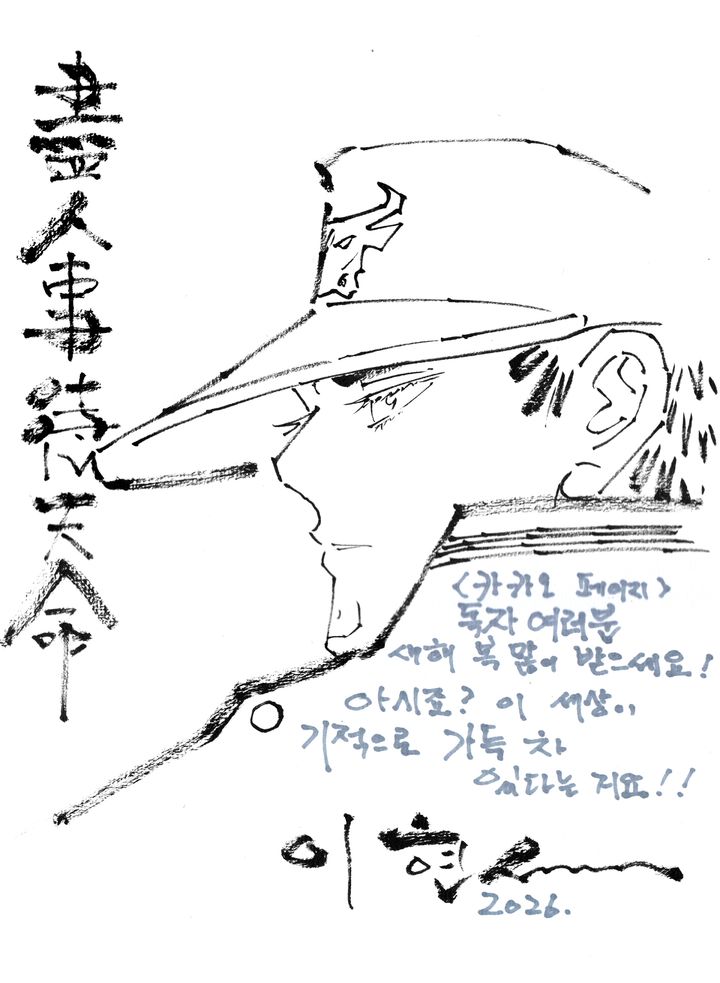 盡人事待天命
<카카오 페이지>
독자 여러분
새해 복 많이 받으세요!
아시죠? 이 세상이
기적으로 가득 차
있다는 거요!!
이현
2026.